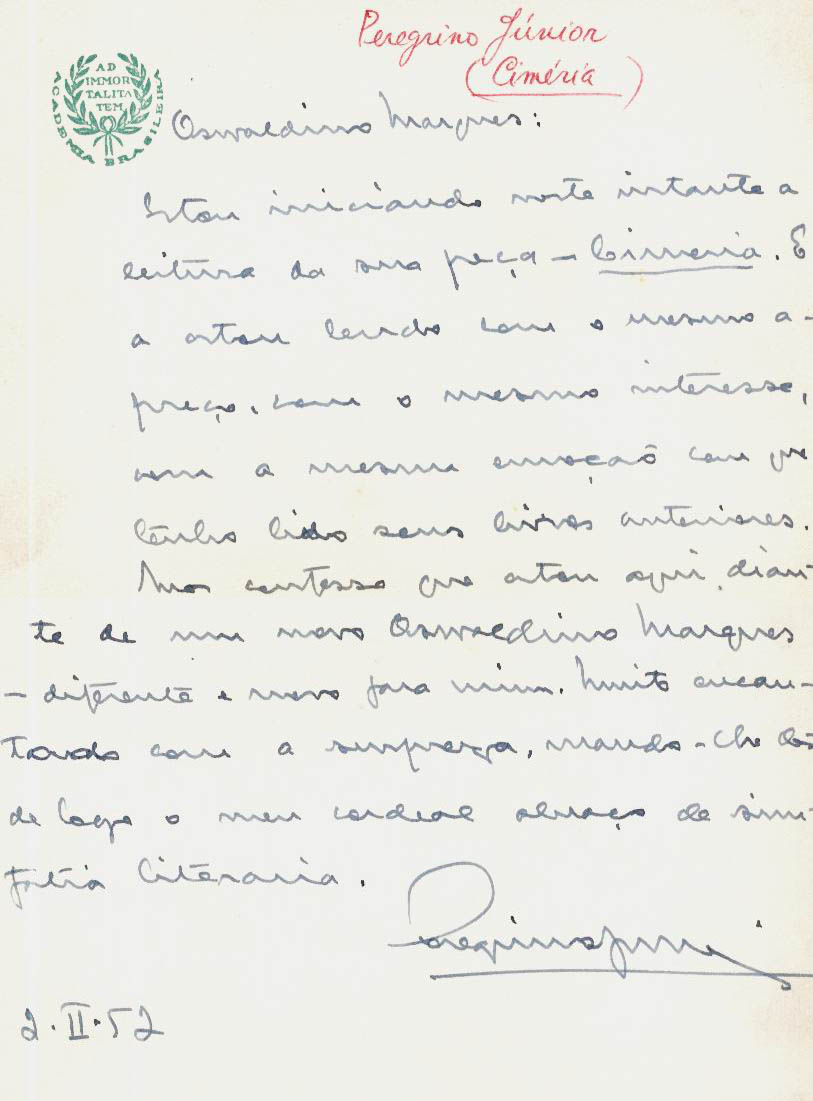 Peregrino Júnior
(Ciméria)
AD
IMMOR
TALITA
TEM
ACADEMIA BRASILEIRA
Oswaldino Marques:
Estou iniciando neste instante a
leitura da sua peça – Cimeria. E
a estou lendo com o mesmo a-
preço, com o mesmo interesse,
com a mesma emoçaõ com que
tenho lido seus livros anteriores.
Mas confesso que estou aqui, dian-
te de um novo Oswaldino Marques
– diferente e novo para mim. Muito encan-
tado com a surpreza, mando-lhe des
de logo o meu cordeal abraço de sim-
patia literaria.
Peregrino Junior
2·II·52